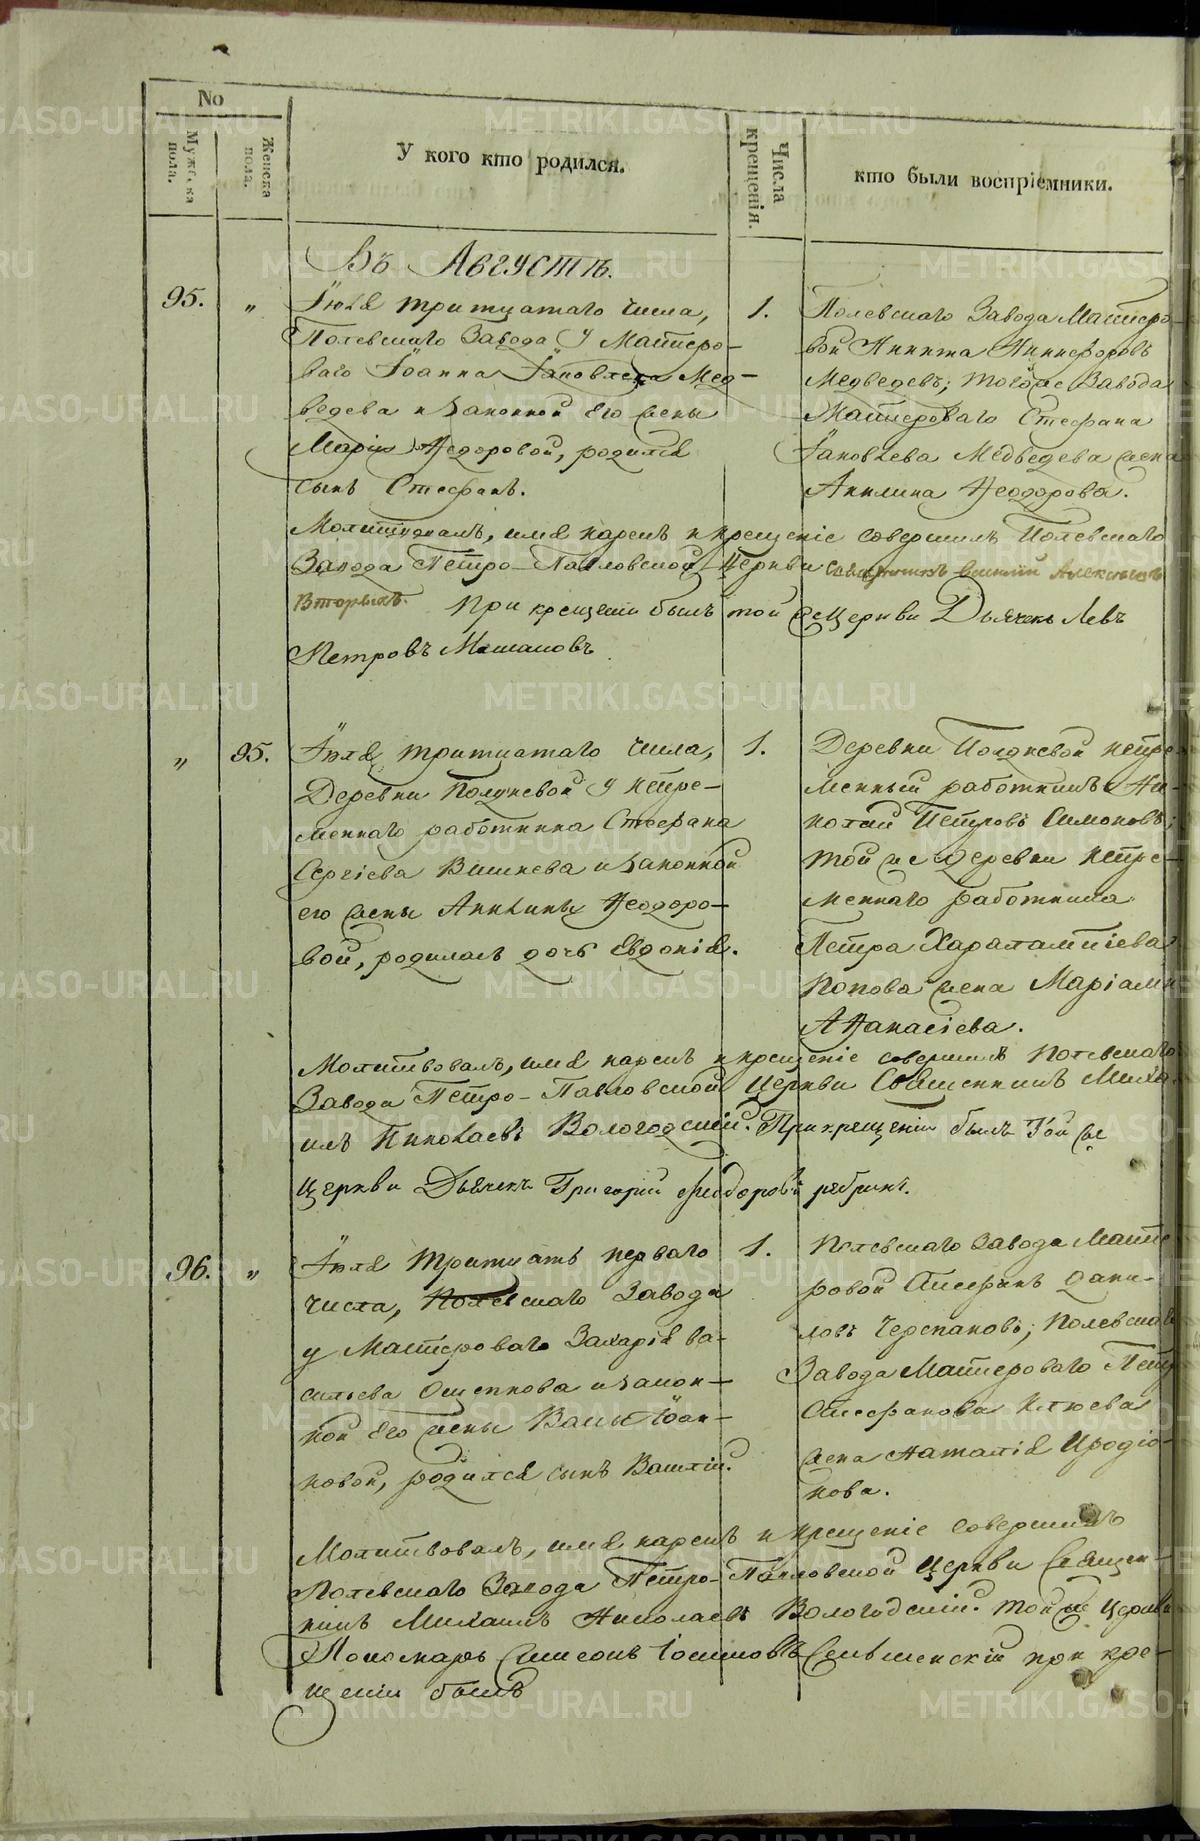 No
Мужеска пола.
Женска пола.
У кого кто родился.
Числа крещенія.
кто были воспріемники.
Въ Августѣ.
95. „ Іюля тритцатаго числа,
Полевскаго Завода у Мастеро-
ваго Іоанна Іаковлева Мед-
ведева и законной его жены
Маріи Ѳедоровой, родился
сынъ Стефанъ.
1. Полевскаго Завода Мастеро-
вой Никита Никифоровъ
Медведевъ; того же Завода
Мастероваго Стефана
Іаковлева Медведева жена
Акилина Ѳеодорова.
Молитвовалъ, имя нарекъ и крещеніе совершилъ Полевскаго
Завода Петро-Павловской Церкви священникъ Василій Алексѣевъ
Вторыхъ. При крещеніи былъ той же Церкви Дьячекъ Левъ
Петровъ
„ 95. Іюля тритцатаго числа,
Деревни Полдневой у непре-
меннаго работника Стефана
Сергіева и законной
его жены Акилины Ѳеодоро-
вой, родилась дочь Евдокія.
1. Деревни Полдневой непре-
менный работникъ Ни-
колай Петровъ Симоновъ;
той же деревни непре-
меннаго работника
Петра Харалампіева
Попова жена Маріамна
Аѳанасіева.
Молитвовалъ, имя нарекъ и крещеніе совершилъ Полевскаго
Завода Петро-Павловской Церкви Священникъ Миха-
илъ Николаевъ Вологодскій. При крещеніи былъ той же
Церкви Дьячекъ Григорій Феодоровъ
96. „ Іюля тритцать перваго
числа, Полевскаго Завода
у Мастероваго Захарія Ва-
сильева Ощепкова и закон-
ной его жены Вассы Іоан-
новой, родился сынъ Василій.
1. Полевскаго Завода Масте-
ровой Стефанъ Дани-
ловъ Черепановъ; Полевскаго
Завода Мастероваго Петра
Стефанова Клюева
жена Наталія Иродіо-
нова.
Молитвовалъ, имя нарекъ и крещеніе совершилъ
Полевскаго Завода Петро-Павловской Церкви Священ-
никъ Михаилъ Николаевъ Вологодскій. Той же Церкви
Пономарь Симеонъ при кре-
щеніи былъ
METRIKI.GASO-URAL.RU